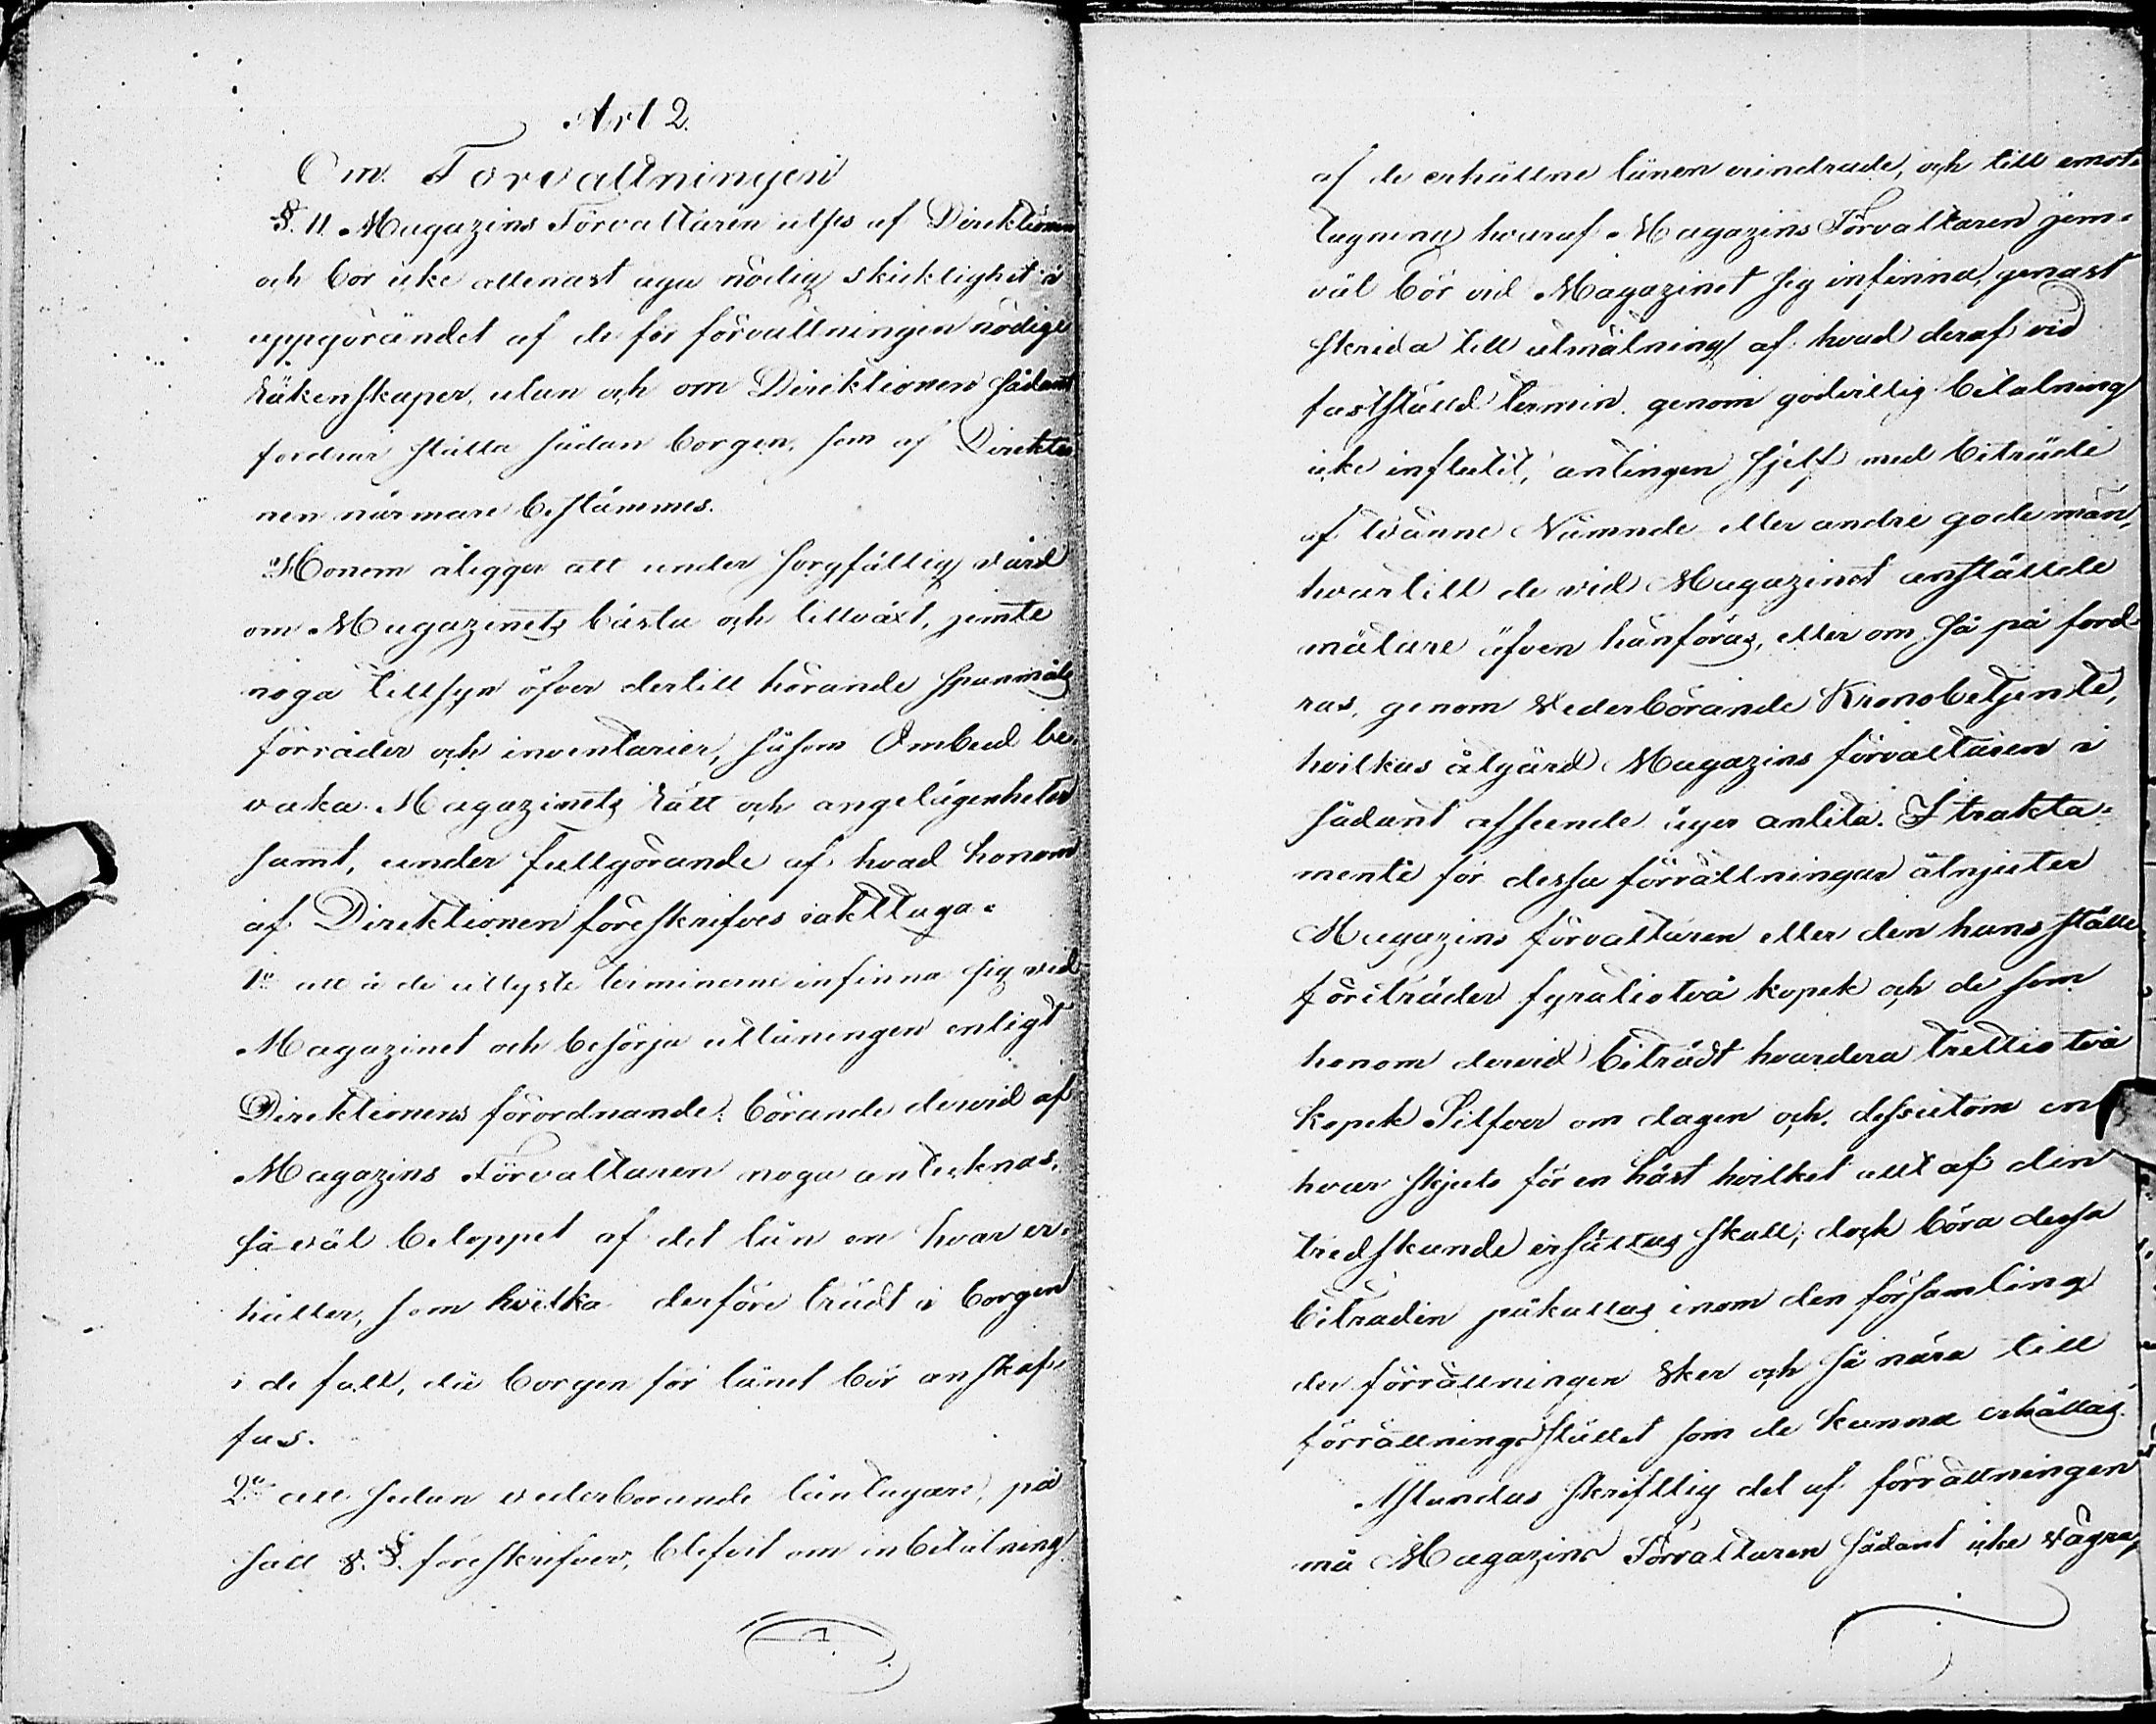 Art 2.
Om Förvaltningen
§. 11. Magazins Förvaltaren utses af Direktionen
och bör icke allenast äga nödig skicklighet i
uppgörandet af de för förvaltningen nödige
räkenskaper, utan och om Direktionen sådant
fordrar ställa sådan borgen, som af Direktio
nen närmare bestämmes.
Honom åligger att under sorgfällig vård
om Magazinets bästa och tillväxt, jemte
noga tillsyn öfver dertill hörande spanmåls
förråder och inventarier, såsom Ombud be-
vaka Magazinets rätt och angelägenheter
samt, under fullgörande af hvad honom
af Direktionen föreskrifves iakttaga=
1o att å de utlyste terminerne infinna sig vid
Magazinet och besörja utlåningen enligt
Direktionens förordnande; börande dervid af
Magazins Förvaltaren noga antecknas,
så väl beloppet af det lån en hvar er-
håller, som hvilka derföre trädt i borgen
i de fall, då borgen för lånet bör anskaf-
fas.
2o att sedan vederbörande låntagare, på
sätt 8. §. föreskrifver, blifvit om inbetalning
af de erhållne lånen erindrade, och till emot-
tagning hvaraf Magazins Förvaltaren jem-
väl bör vid Magazinet sig infinna, genast
skrida till utmätning af hvad deraf vid
fastställd termin genom godvillig betalning
icke influtit, antingen sjelf med biträde
af tvänne Nämnde eller andre gode män,
hvartill de vid Magazinet anställde
mätare äfven hänföras, eller om så på ford-
ras, genom Vederbörande Kronobetjente,
hvilkas åtgärd Magazins förvaltaren i
sådant afseende äger anlita. I trakta-
mente för dessa förrättningar åtnjuter
Magazins förvaltaren eller den hans ställe
företräder fyratiotvå kopek och de som
honom dervid biträdt hvardera trettiotvå
kopek Silfver om dagen och dessutom en
hvar skjuts för en häst hvilket allt af den
tredskande ersättas skall; dock böra dessa
biträden påkallas inom den församling
der förrättningen sker och så nära till
förrättnings stället som de kunna erhållas.
Åstundas skriftlig del af förrättningen
må Magazins Förvaltaren sådant icke vägra,